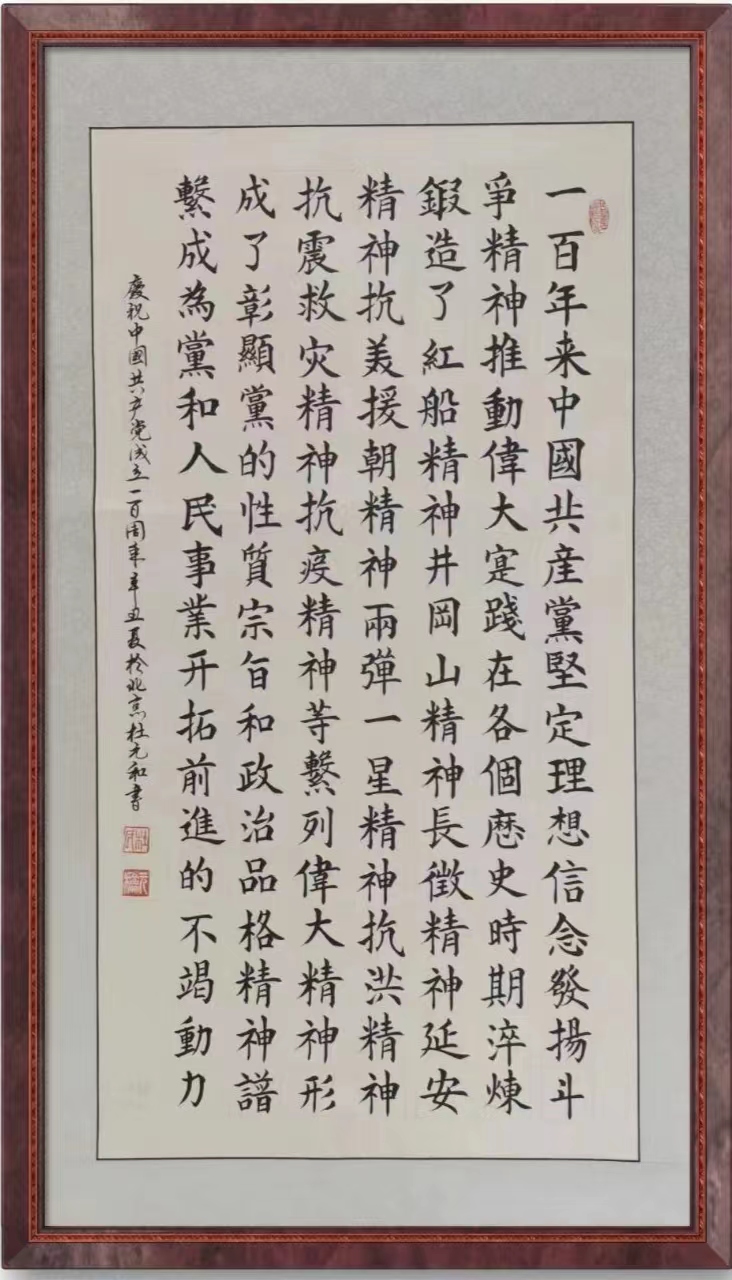 一百年来中國共産黨堅定理想信念發揚斗
爭精神推動偉大寔踐在各個歷史時期淬煉
鍜造了紅船精神井岡山精神長徵精神延安
精神抗美援朝精神兩彈一星精神抗洪精神
抗震救灾精神抗疫精神等繫列偉大精神形
成了彰顯黨的性質宗旨和政治品格精神譜
繫成為黨和人民事業开拓前進的不竭動力
慶祝中國共产党成立一百周年辛丑夏於北京杜元和書